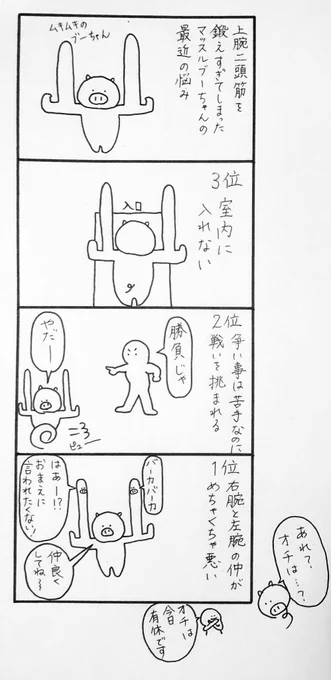 上腕二頭筋を
鍛えすぎてしまった
マッスルブーちゃんの
最近の悩み
ムキムキの
ブーちゃん
3位 室内に
入れない
入口
2位 争い事は苦手なのに
戦いを挑まれる
勝負じゃ
やだー
ピュー
1位 右腕と左腕の仲が
めちゃくちゃ悪い
バーカバーカ
はあー!?
おまえに
言われたくない!
仲良く
してね〜
あれ?
オチは…?
オチは
今日
有休です